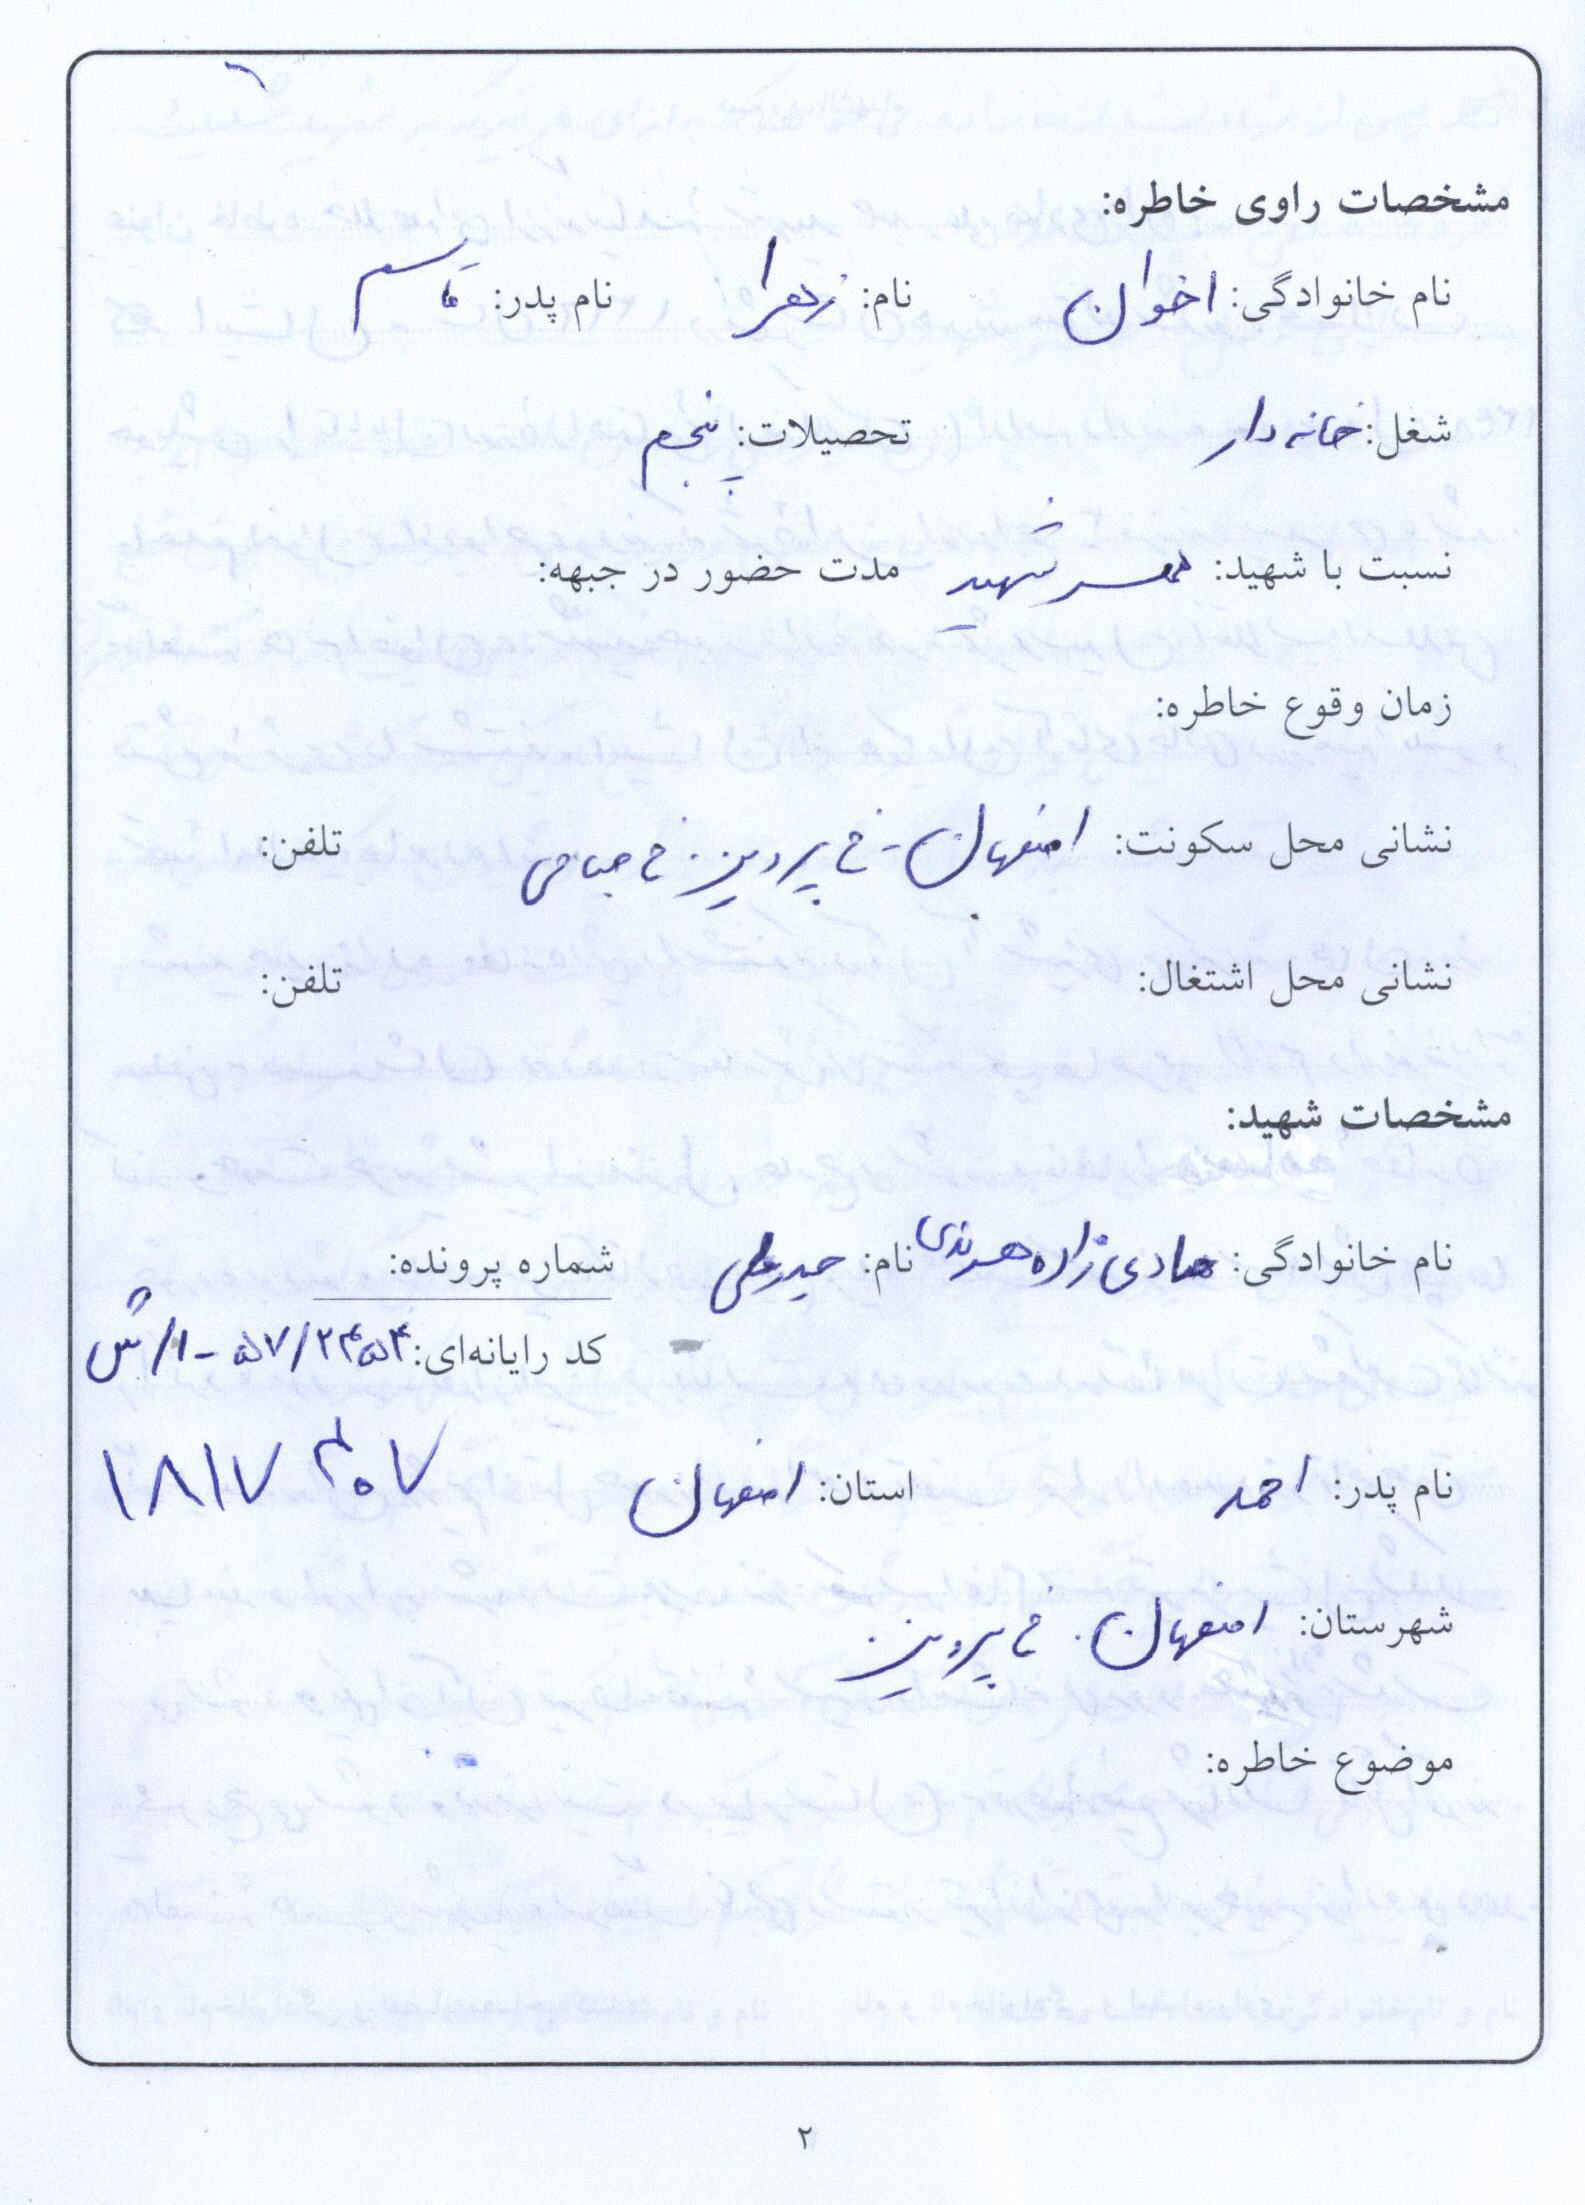 مشخصات راوی خاطره:
نام خانوادگی: اخوان نام: زهرا نام پدر: قاسم
شغل: خانه دار تحصیلات: پنجم
نسبت با شهید: همسر شهید مدت حضور در جبهه:
زمان وقوع خاطره:
نشانی محل سکونت: اصفهان - خ پروین - خ تلفن:
نشانی محل اشتغال: تلفن:
مشخصات شهید:
نام خانوادگی: هادی زاده هرندی نام: حیدرعلی شماره پرونده:
کد رایانه‌ای: ۵۷/۲۴۵۴ - ۱/ش
نام پدر: احمد استان: اصفهان ۱۸۱۷۴۰۷
شهرستان: اصفهان . خ پروین
موضوع خاطره:
۲